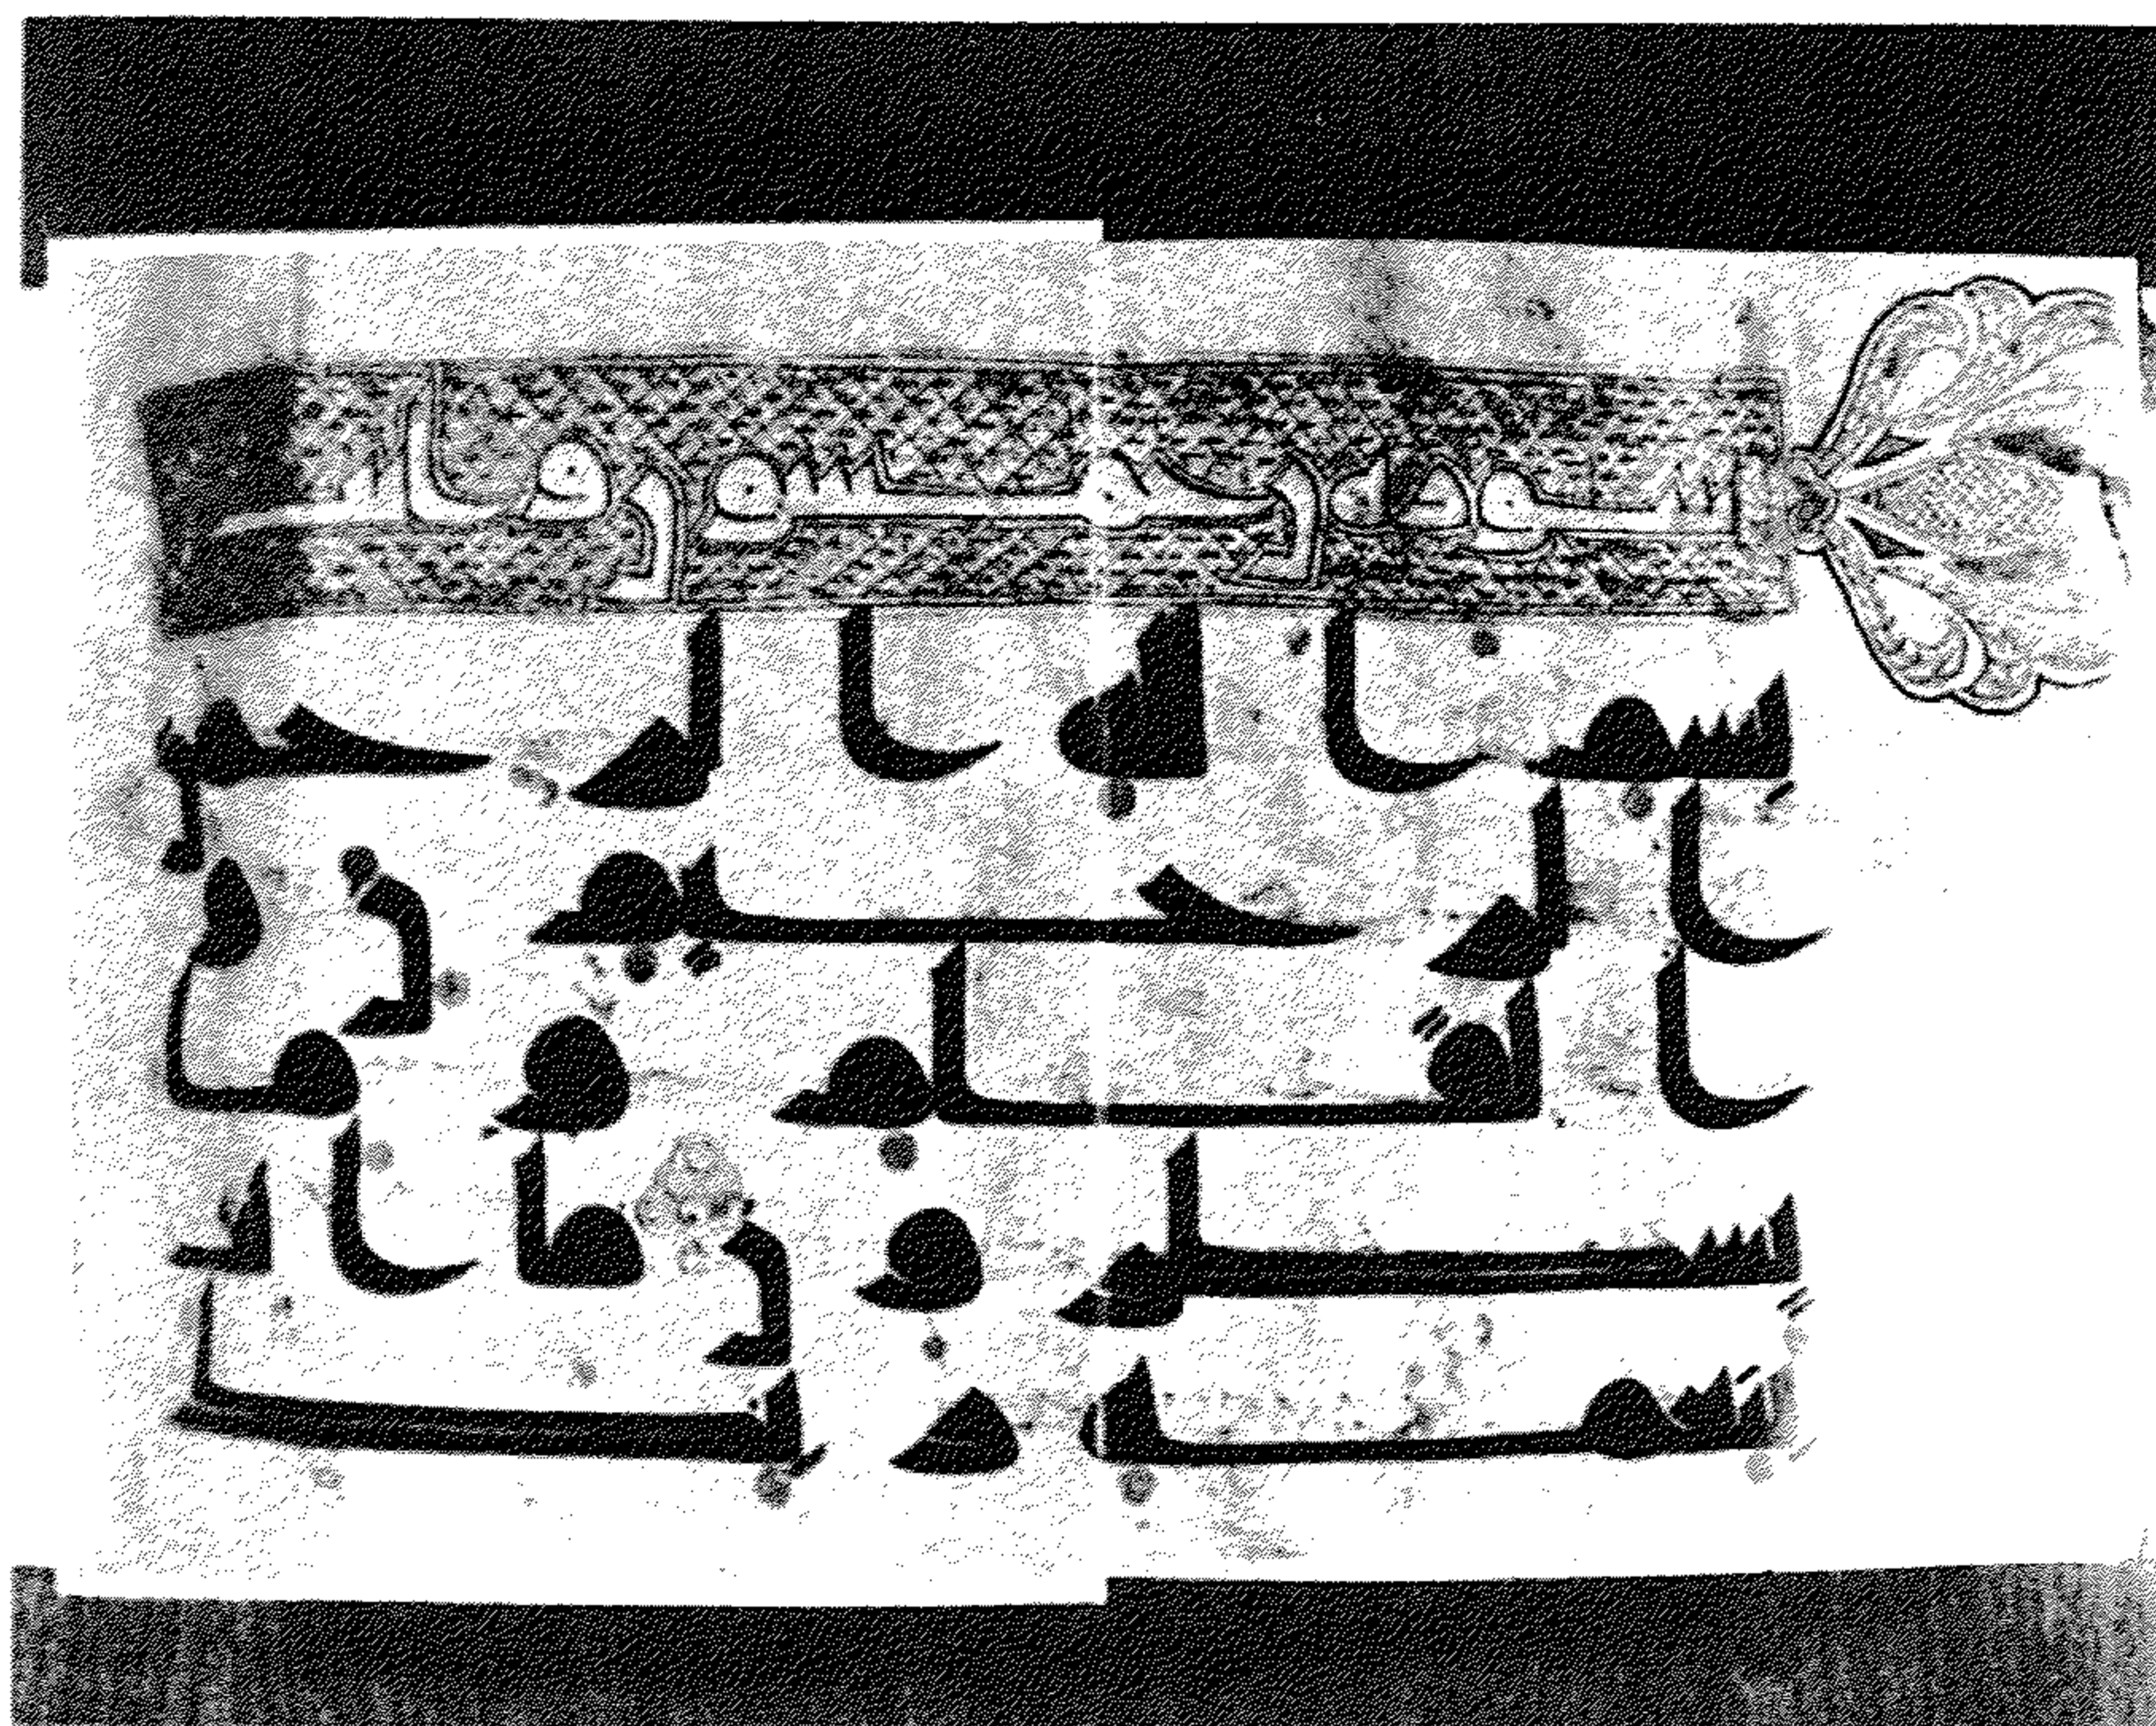 خمسون و
بسم الله الرحمن
الرحيم ن و
القلم وما
يسطرون ما انت
بنعمة ربك